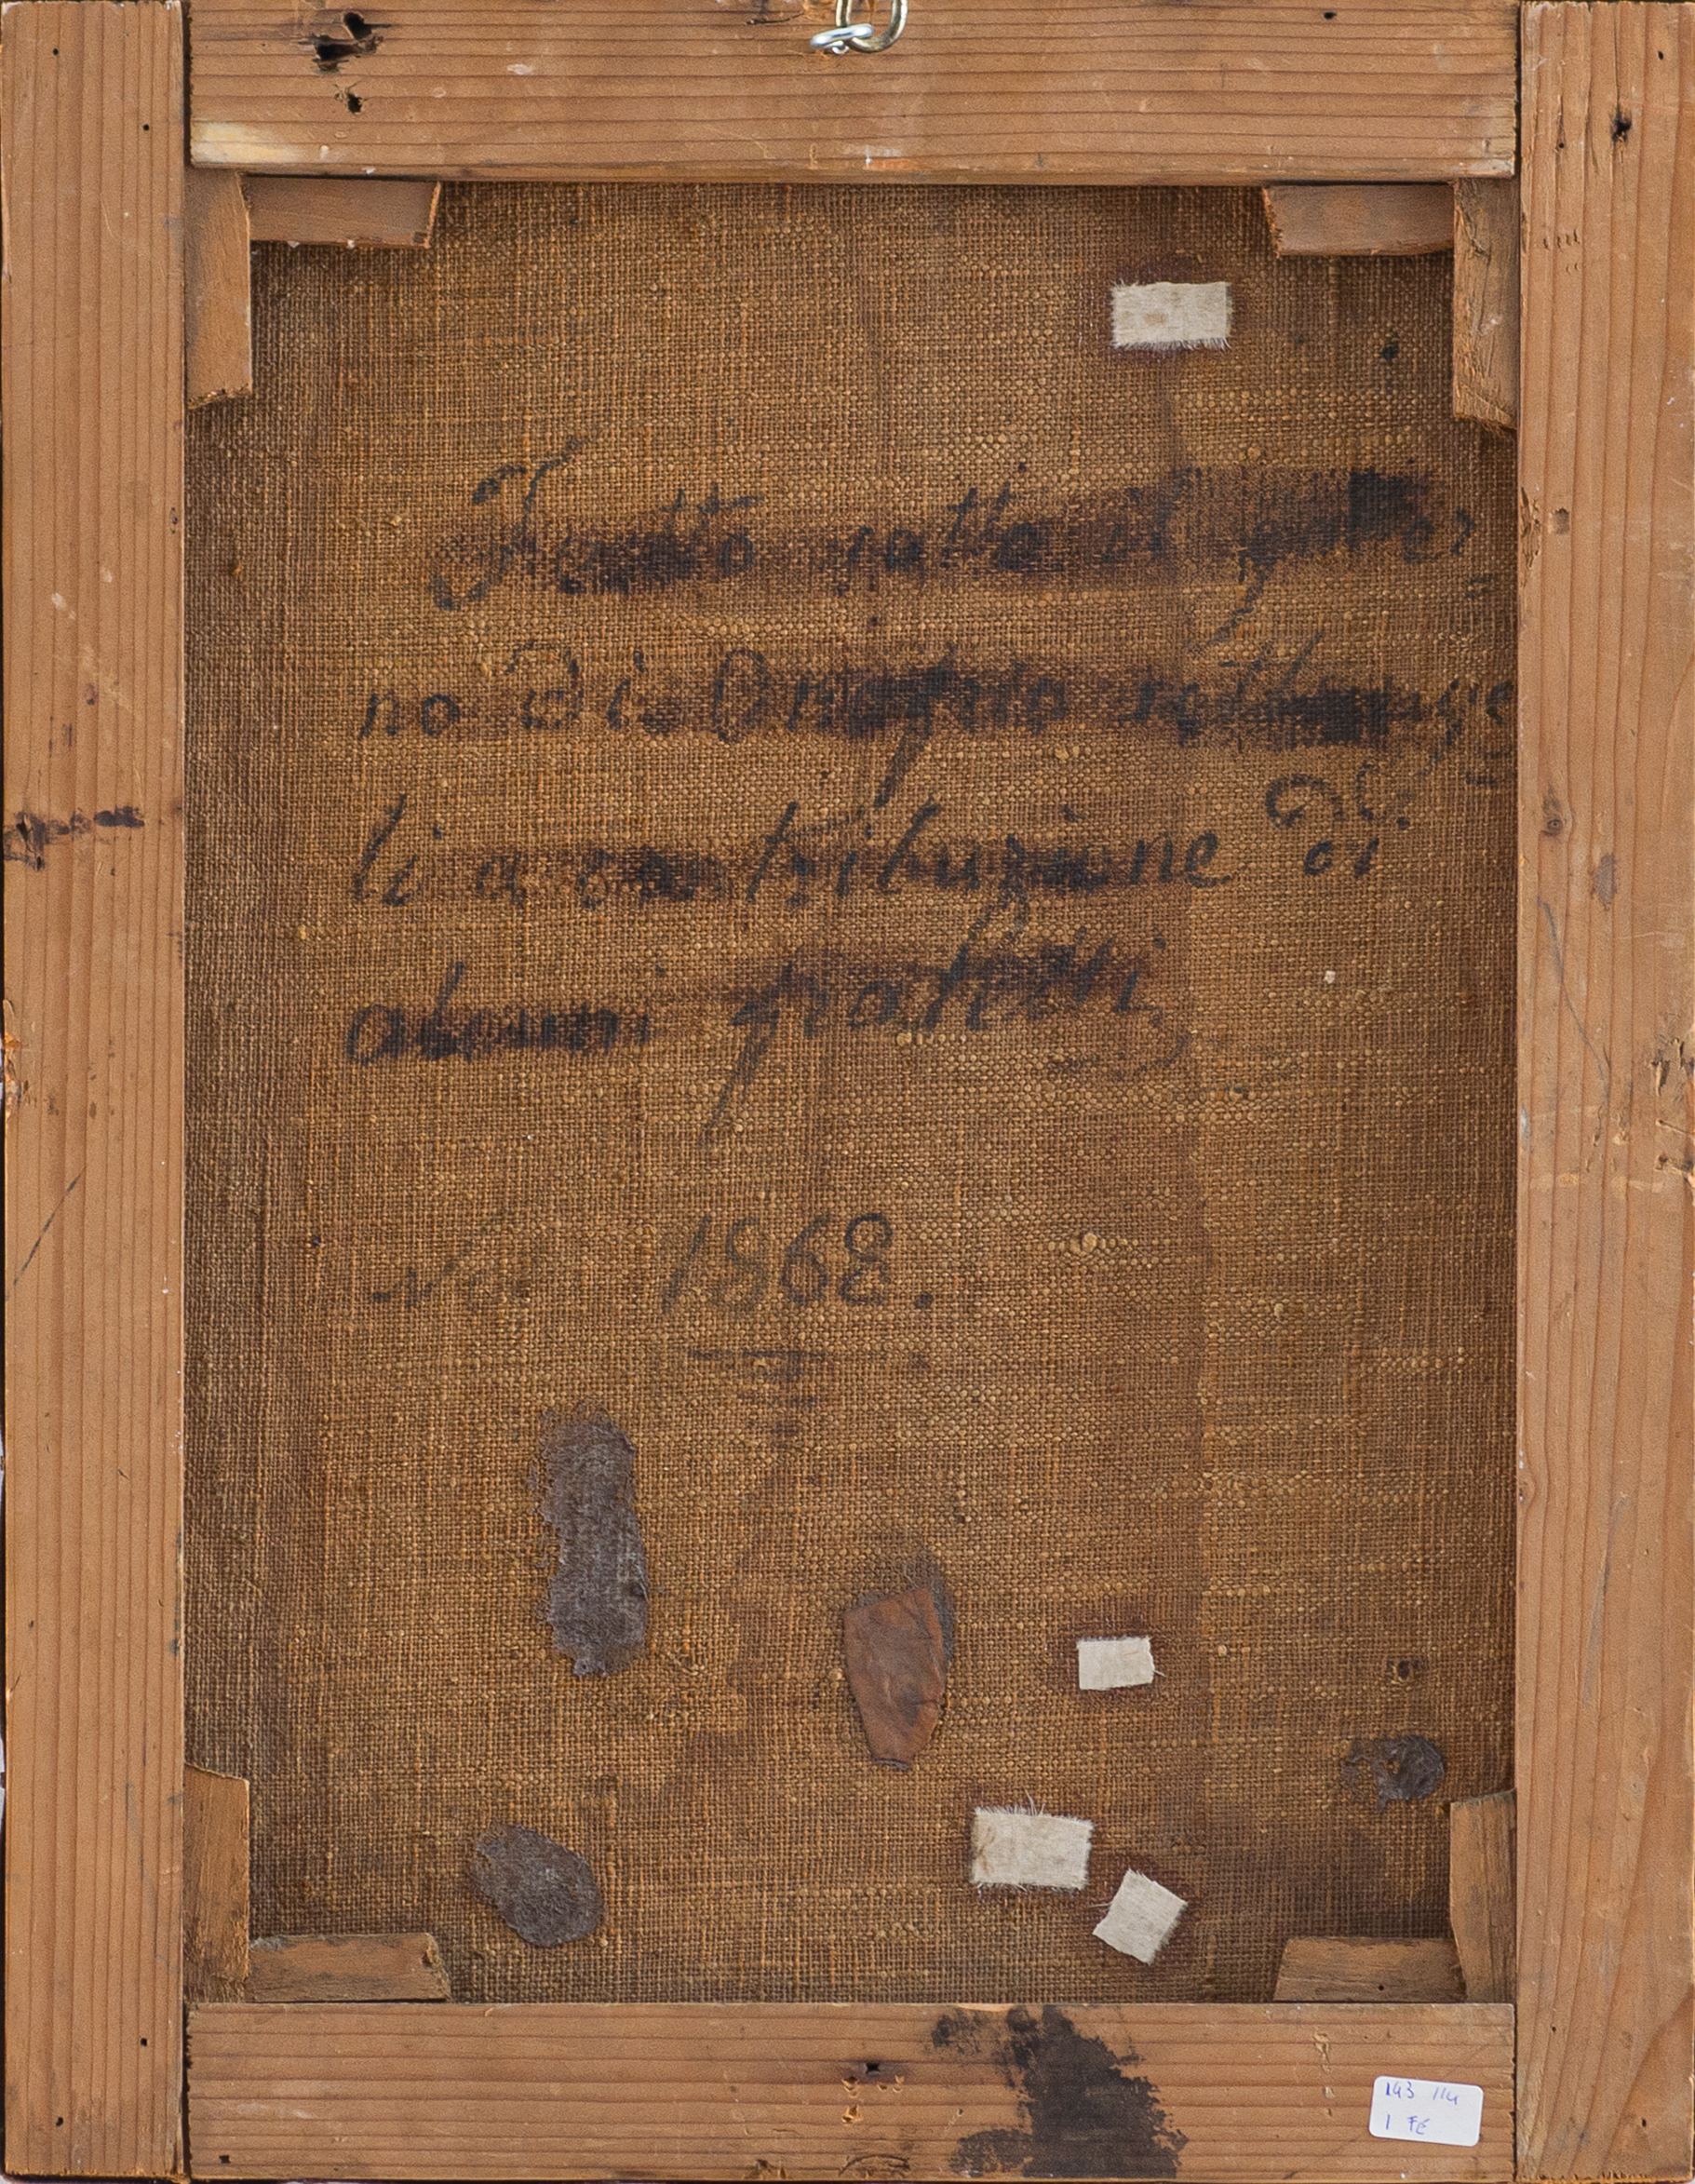 Fatto sotto il gover
no Di Onofrio
li a contribuzione Di
alcuni fratelli
Nel 1868.
114
1 FE